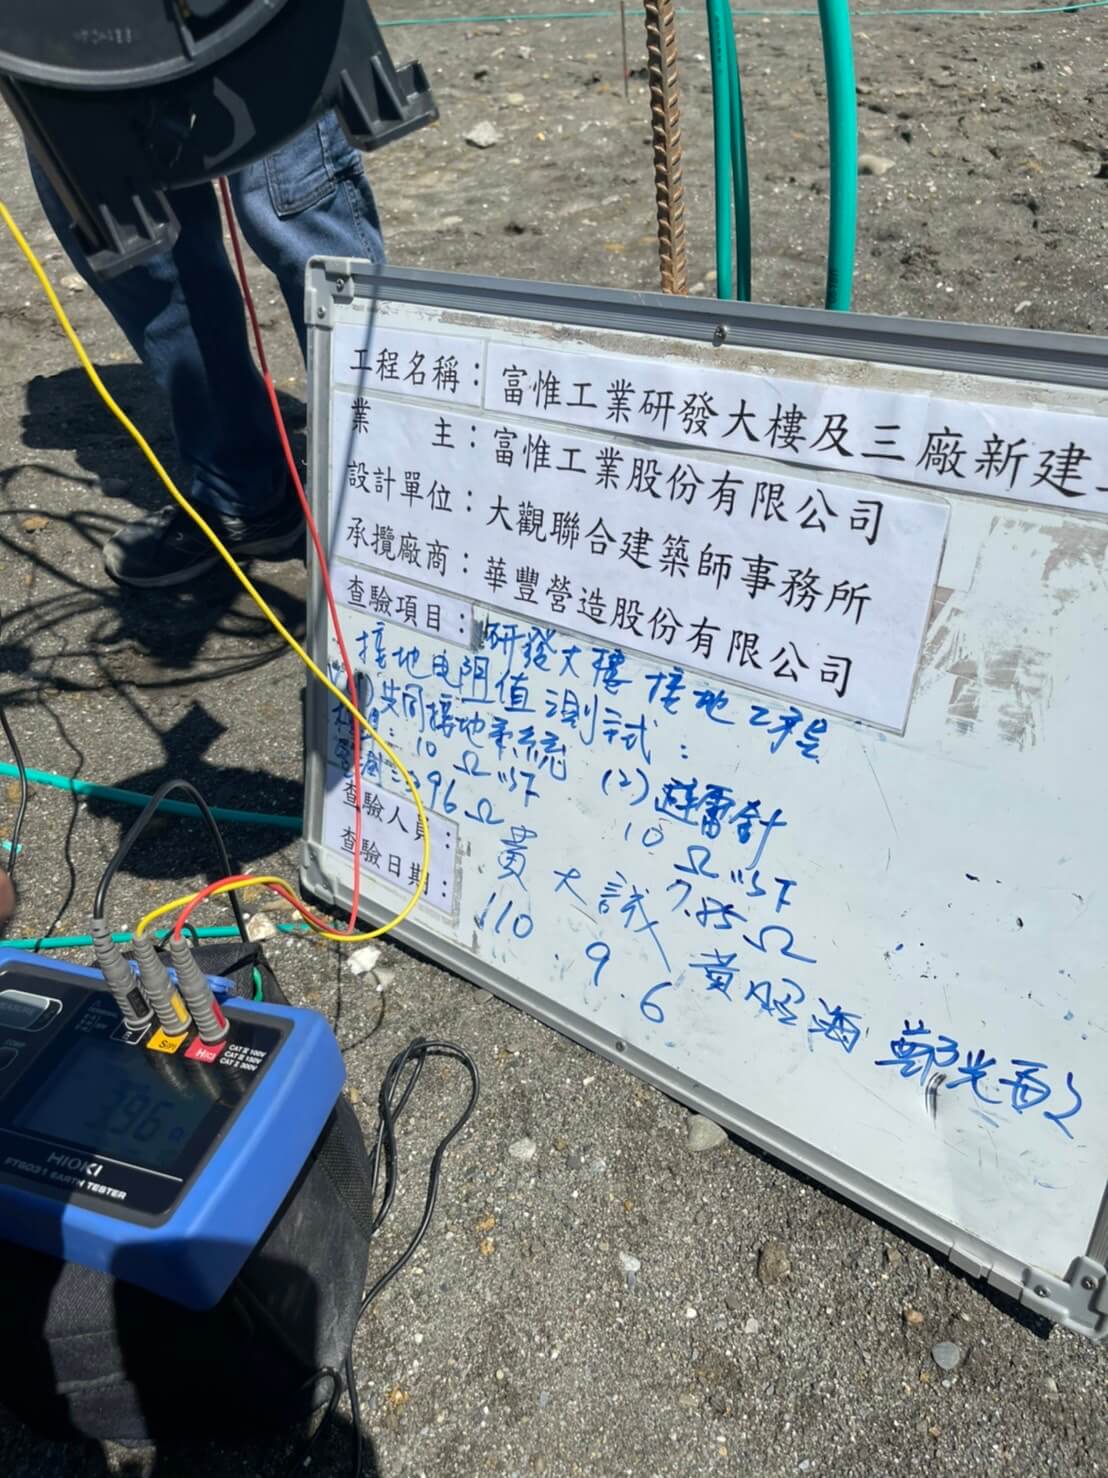 工程名稱：富惟工業研發大樓及三廠新建
業 主：富惟工業股份有限公司
設計單位：大觀聯合建築師事務所
承攬廠商：華豐營造股份有限公司
查驗項目：研發大樓 接地工程
接地电阻值測試：
共同接地系統 (2)避雷針
10 Ω以下 10 Ω以下
3.96 Ω 7.85 Ω
查驗人員：黃大誠
查驗日期：110.9.6
S(P)
H(C)
CAT Ⅱ 300V
3.96 Ω
HIOKI
FT6031 EARTH TESTER